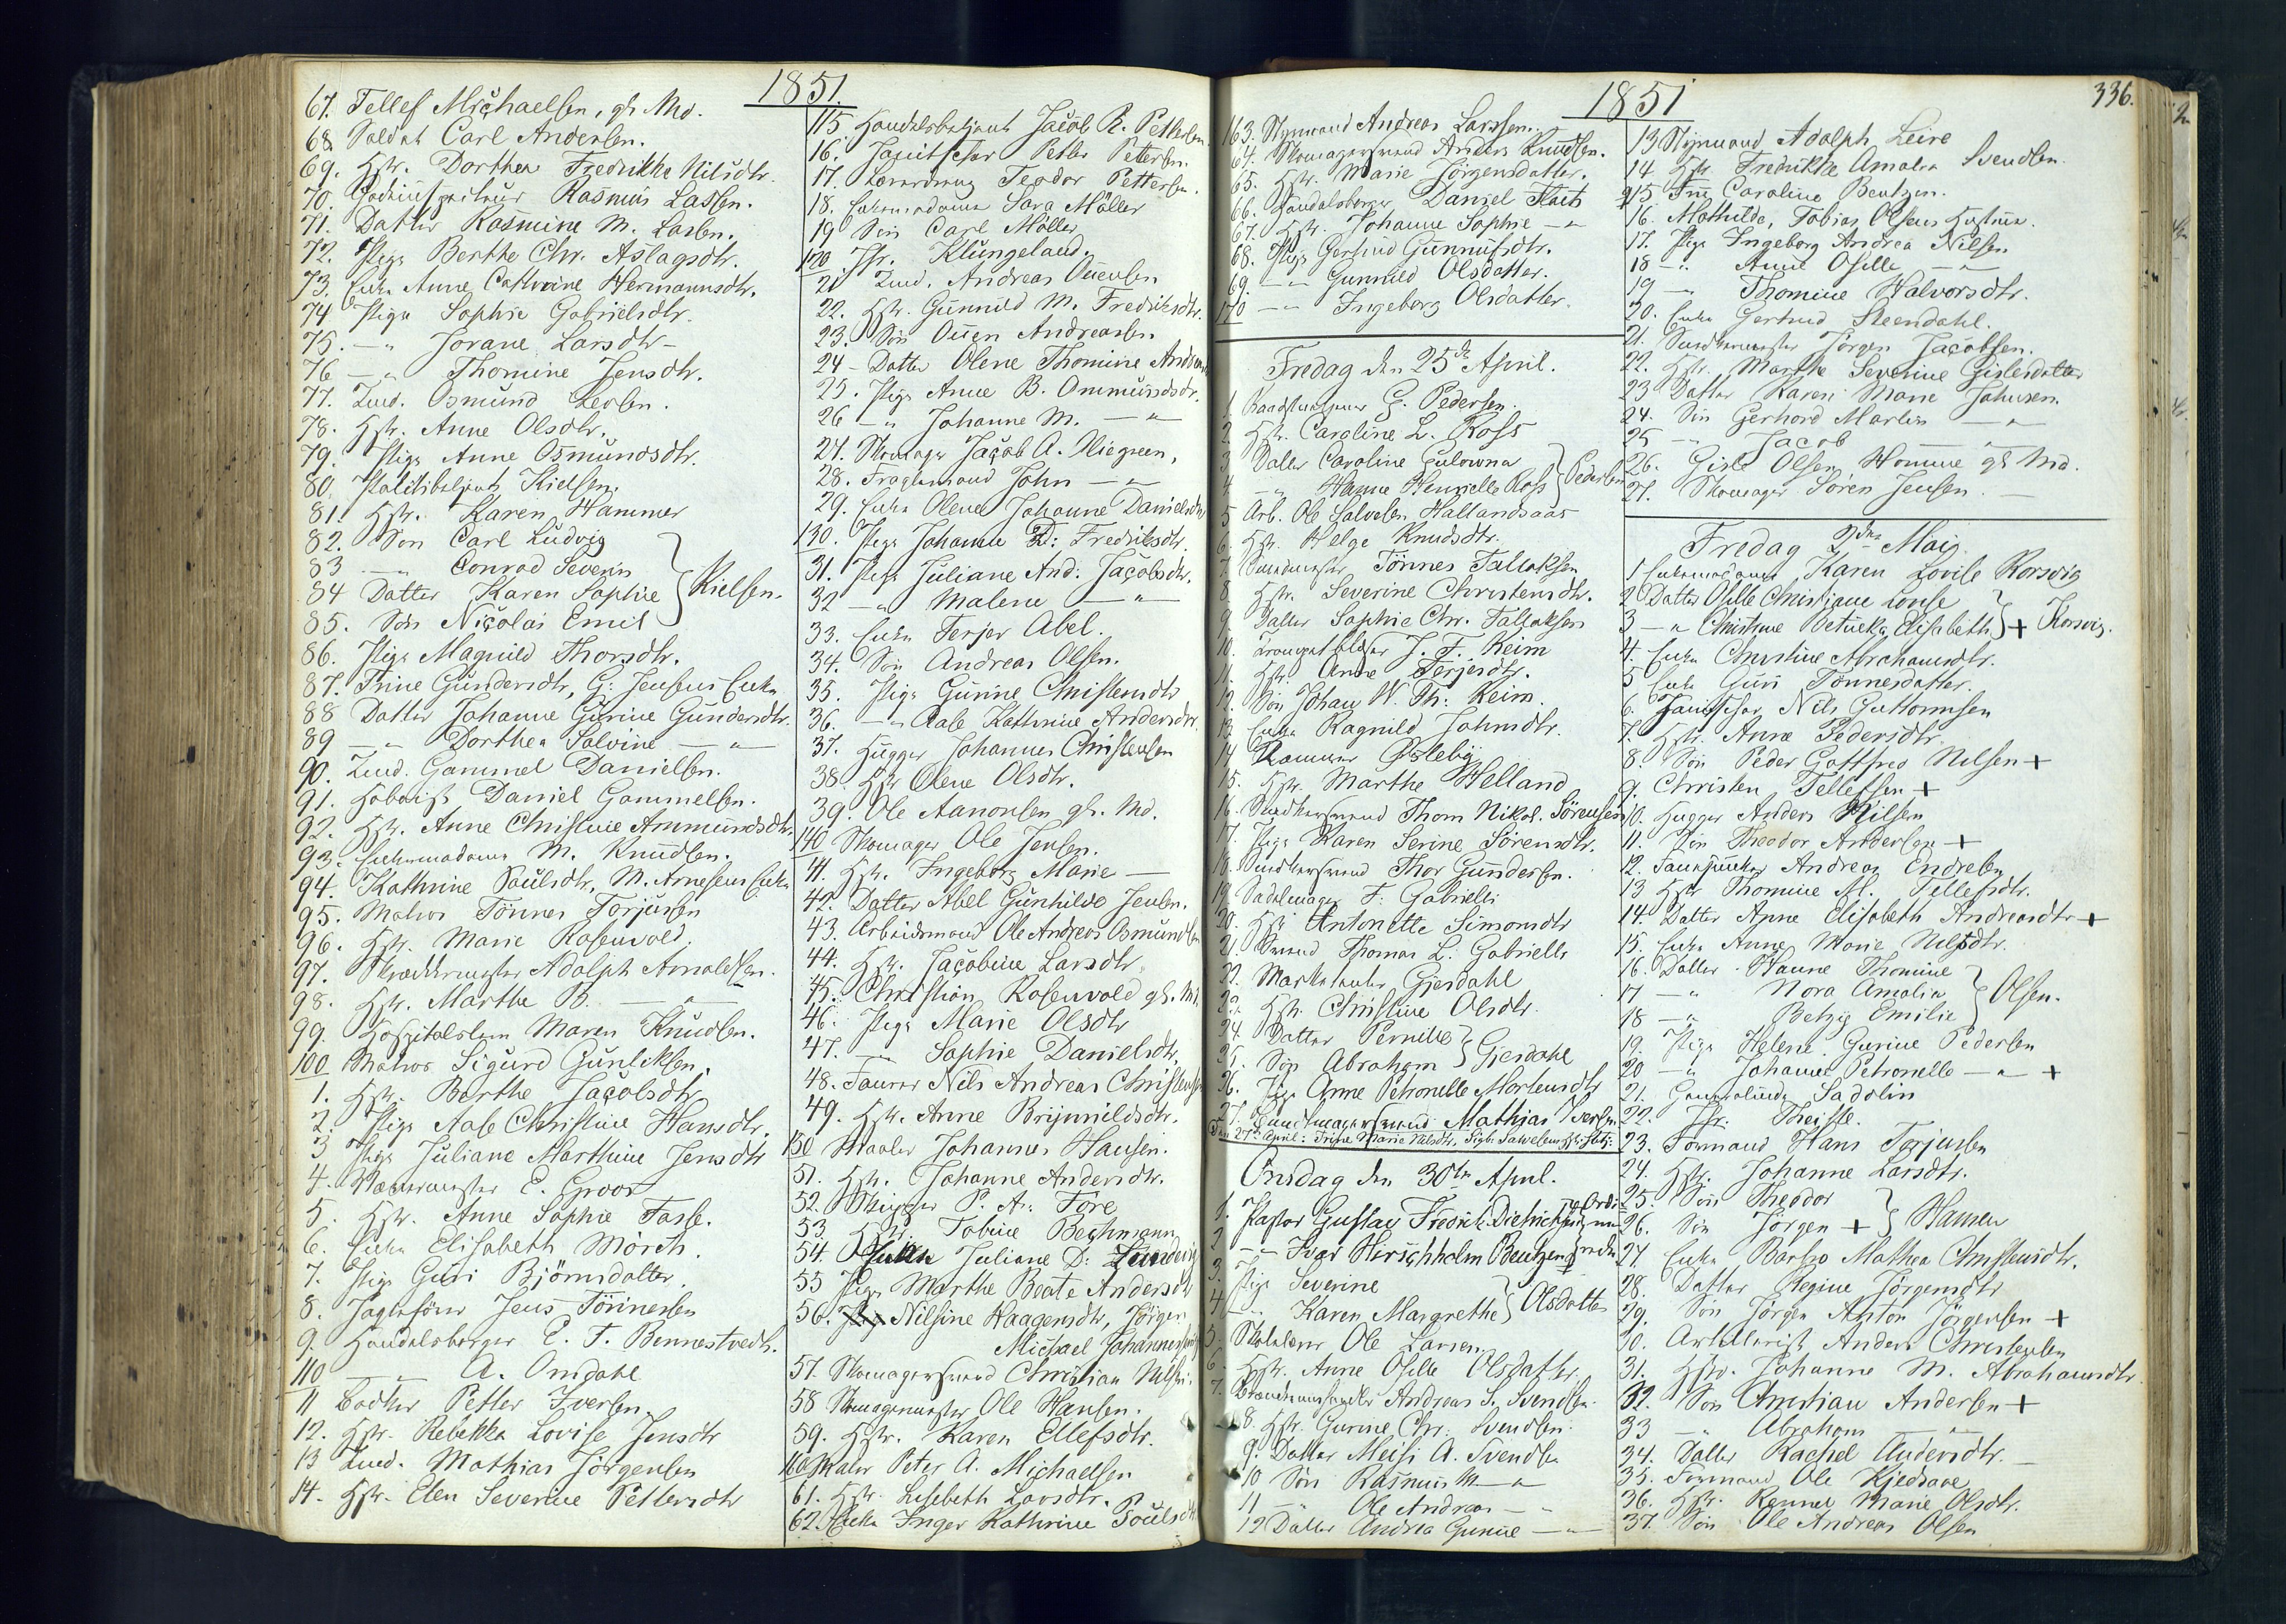 1851.
67. Tellef Michaelsen, gl. Md.
68 Soldat Carl Andersen.
69. Hstr. Dorthea Fredrikke Nilsdtr.
70. Rasmus Lassen.
71. Datter Rasmine M. Lassen.
72. Pige Berthe Chr. Aslagsdtr.
73. Enke Anne Cathrine Hermannsdtr.
74 Pige Sophie Gabrielsdtr.
75. —„ Jorane Larsdtr —
76 —„ Thomine Jensdtr.
77. Tmd. Osmund Leosen.
78. Hstr. Anne Olsdtr.
79. Pige Anne Osmundsdtr.
80. Politibetjent Kielsen.
81. Hstr. Karen Hammer
82. Søn Carl Ludvig
83 —„ Conrad Severin
84 Datter Karen Sophie } Kielsen.
85. Søn Nicolai Emil
86. Pige Magnild Thorsdtr.
87. Trine Gundersdtr, G: Jensens Enke
88 Datter Johanne Gurine Gundersdtr.
89 —„ Dorthea Salvine —„—
90. Tmd. Gammel Danielsen.
91. Hoboist Daniel Gammelsen.
92. Hstr. Anne Christine Ammundsdtr.
93. Enkemadame M. Knudsen.
94. Kathrine Poulsdtr, M. Arnesens Enke
95. Matros Tönnes Torjusen
96. Hstr. Marie Rosenvold.
97. Skræddermester Adolph Arnoldsen.
98. Hstr. Marthe B. —„—
99. Hospitalslem Maren Knudsen.
100 Matros Sigurd Gunleiksen.
1. Hstr. Berthe Jacobsdtr
2. Pige Aase Christine Hansdtr.
3 Pige Juliane Marthine Jensdtr
4. E. Groos
5. Hstr. Anne Sophie Fasse.
6. Enke Elisabeth Mörch.
7. Pige Guri Björnsdatter.
8. Jagtefører Jens Tönnesen
9. Handelsborger E. T. Bennestvedt.
110 —„— A. Omdahl
11 Bødker Petter Iversen.
12. Hstr. Rebekka Lovise Jensdtr
13 Tmd. Mathias Jörgensen
14. Hstr. Elen Severine Pettersdtr
115. Handelsbetjent Jacob R. Pettersen.
16. Janitschar Petter Petersen.
17. Teodor Pettersen.
18. Enkemadame Sara Möller
19 Søn Carl Möller
120 Jfr. Klungeland.
21 Tmd. Andreas Ouensen
22. Hstr. Gunnild M. Fredriksdtr.
23. Søn Ouen Andreasen
24 – Datter Olene Thomine
25. Pige Anne B. Ommundsdtr.
26 —„ Johanne M. —„—
27. Skomager Jacob A. Hiegreen,
28. Fragtemand John —„—
29. Enke Olene Johanne Danielsdtr
130. Pige Johanne D: Fredriksdtr.
31. Pige Juliane And: Jacobsdtr.
32 —„ Malene —„—
33. Enke Terjer Abel.
34. Søn Andreas Olsen.
35. Pige Gurine Christensdtr
36. —„ Aase Kathrine Andersdtr.
37. Hugger Johannes Christensen
38. Hstr Olene Olsdtr.
39. Ole Aanonsen gl. Md.
140 Skomager Ole Jensen.
41. Hstr. Ingeborg Marie —
42. Datter Abel Gunhilde Jensen.
43. Arbeidsmand Ole Andreas Osmundsen
44. Hstr. Jacobine Larsdtr
45. Christian Rosenvold gl. Md.
46. Pige Marie Olsdtr
47. —„ Sophie Danielsdtr.
48. Nils Andreas Christensen
49. Hstr. Anne Brynnildsdtr.
150 Maaler Johannes Hansen.
51. Hstr. Johanne Andersdtr.
52. Skipper P. A. Fore
53. Hstr. Tobine Bechmann
54. Enke Juliane D:
55 Pige Marthe Beate Andersdtr
56. Nilsine Haagensdtr, Jörgen
Michael Johannesens
57. Skomagersvend Christian Nilsen.
58 Skomagermester Ole Hansen.
59. Hstr. Karen Ellefsdtr.
160 Maler Peter A. Michaelsen
61. Hstr. Lisebeth Larsdtr.
62. Enke Inger Kathrine Poulsdtr
1851
336.
163. Styrmand Andreas Larssen.
64. Skomagersvend Anders Knudsen.
65. Hstr. Marie Jörgensdatter.
66. Handelsborger Daniel
67. Hstr. Johanne Sophie —„
68. Pige Gertrud Gunnufsdtr.
69. —„— Gunnild Olsdatter.
170 —„— Ingeborg Olsdatter.
Fredag den 25de April.
1. G. Pedersen.
2. Hstr. Caroline L. Ross
3. Datter Caroline Gulowna
4. —„ Hanne Henriette Ross } Pedersen
5 Arb. Ole Salvesen Hallandsaas
6. Hstr. Helge Knudsdtr.
7. Tönnes Tallaksen
8. Hstr. Severine Christensdtr.
9. Datter Sophie Chr. Tallaksen
10. J. F. Keim
11. Hstr. Anne Terjesdtr.
12. Søn Johan W. Th. Keim.
13. Enke Ragnild Johnsdtr.
14 Østebig
15. Hstr. Marthe Helland
16. Snedkersvend Thom Nikol. Sörensen
17. Pige Karen Serine Sörensdtr.
18. Snedkersvend Thor Gundersen.
19. Sadelmager F: Gabrielli
20. Hstr Antonette Simonsdtr
21. Svend Thomas L. Gabrielli
22. Gjerdahl
23. Hstr. Christine Olsdtr.
24. Datter Pernille
25. Søn Abraham } Gjerdahl
26. Pige Anne Petronelle Mortensdtr
27. Mathias Iversen.
Den 27de April: Trine Marie Nilsdtr,
Onsdag den 30te April.
1. Pastor Gustav Fredrik Dietrichson
2 —„— Ivar Hirschholm Bentzen
3. Pige Severine
4 —„— Karen Margrethe } Olsdatter
5. Ole Larsen
6. Hstr. Anne Oselle Olsdatter.
7. Andreas S. Svendsen
8. Hstr. Gurine Chr. Svendsen.
9. Datter Meisi A. Svendsen
10 Søn Rasmus M —„
11 —„ Ole Andreas —„
12 Datter Andrea Gunine —„—
13 Styrmand Adolph Leire
14 Hstr Fredrikke Amalia Svendsen.
15 Fru Caroline Bentzen.
16. Mathilde, Tobias Olsens Hustrue.
17. Pige Ingeborg Andrea Nilsen
18 —„ Anne Oselle —„—
19 —„ Thomine Halvorsdtr.
20. Enke Gertrud Steendahl.
21. Snedkermester Jörgen Jacobsen.
22. Hstr. Marthe Severine Gislesdatter
23 Datter Karen Marie Johnsen.
24. Søn Gerhard Martin —„
25 —„ Jacob —„—
26. Gisle Olsen Homme gl. Md.
27. Skomager Sören Jensen. —
Fredag 2den Maig.
1 Enkemadame Karen Lovise Rorsvig
2 Datter Oselle Christiane Louise
3 —„ Christine Betueke Elisabeth } + Korsvig.
4. Enke Christine Abrahamsdtr.
5 Enke Guri Tönnesdatter.
6. Janitschar Nils Guttormsen
7. Hstr. Anne Pedersdtr.
8. Søn Peder Gottfred Nilsen +
9. Christen Tellefsen +
10. Hugger Anders Nilsen
11. Søn Theodor Andersen +
12. Andreas Endresen
13 Hstr Thomine M. Tellefsdtr.
14. Datter Anne Elisabeth Andreasdtr +
15. Enke Anne Marie Nilsdtr.
16. Datter Hanne Thomine
17 —„ Nora Amalia } Olsen.
18 —„ Betzy Emilie
19. Pige Helene Gurine Pedersen
20 —„ Johanne Petronelle —„ +
21. Sadolin
22. Jfr. Theiste.
23. Formand Hans Torjusen
24. Hstr. Johanne Larsdtr.
25. Søn Theodor
26. Søn Jörgen + } Hansen
27. Enke Barbro Mathea Christensdtr.
28. Datter Regine Jörgensdtr
29. Søn Jörgen Anton Jörgensen +
30. Artillerist Anders Christensen
31. Hstr. Johanne M. Abrahamsdtr.
32. Søn Christian Andersen +
33 —„ Abraham —„—
34. Datter Rachel Andersdtr. —
35. Formand Ole Kjedsaae
36. Hstr. Rennei Marie Olsdtr.
37. Søn Ole Andreas Olsen